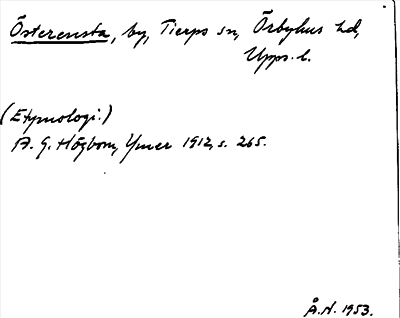 Österensta, by, Tierps sn, Örbyhus hd,
Upps. l.
(Etymologi:)
A. G. Högbom, Ymer 1912, s. 265.
Å.N. 1953.